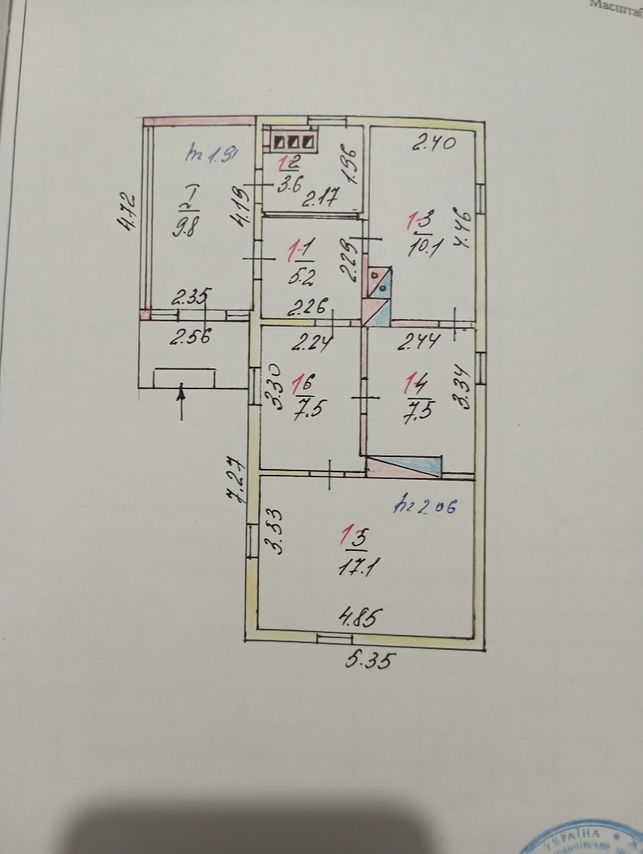 Масштаб
2.40
h=1.91
1-2
3.6
1.96
4.72
I
9.8
4.19
2.17
1-3
10.1
4.46
1-1
5.2
2.29
2.35
2.26
2.56
2.24
2.44
3.30
1-6
7.5
1-4
7.5
3.34
7.27
h=2.06
3.33
1-5
17.1
4.85
5.35
УКРАЇНА